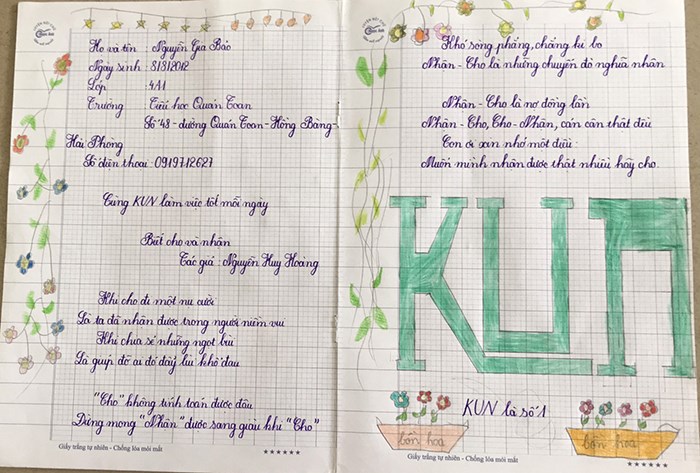 Họ và tên : Nguyễn Gia Bảo
Ngày sinh : 8/3/2012
Lớp : 4A1
Trường : Tiểu học Quán Toan
Số 48 - đường Quán Toan - Hồng Bàng -
Hải Phòng
Số điện thoại : 0919712627
Cùng KUN làm việc tốt mỗi ngày
Biết cho và nhận
Tác giả : Nguyễn Huy Hoàng
Khi cho đi một nụ cười
Là ta đã nhận được trong người niềm vui
Khi chia sẻ những ngọt bùi
Là giúp đỡ ai đó đẩy lùi khổ đau
"Cho" không tính toán được đâu
Đừng mong "Nhận" được sang giàu khi "Cho"
Giấy trắng tự nhiên - Chống lóa mỏi mắt
Khó sòng phẳng, chẳng kì bo
Nhận - Cho là những chuyến đò nghĩa nhân
Nhận - Cho là nợ đồng lần
Nhận - Cho, Cho - Nhận, cán cân thật đều
Con ơi xin nhớ một điều :
Muốn mình nhận được thật nhiều hãy cho.
KUN
KUN là số 1
bồn hoa
bồn hoa
Giấy trắng tự nhiên - Chống lóa mỏi mắt